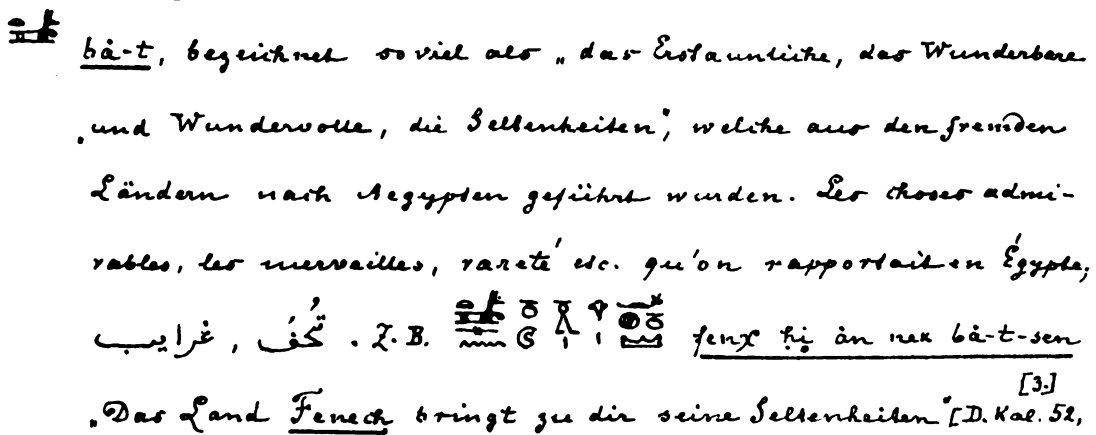 bȧ-t, bezeichnet soviel als „das Erstaunliche, das Wunderbare
„und Wundervolle, die Seltenheiten", welche aus den fremden
Ländern nach Aegypten geführt wurden. Les choses admi-
rables, les merveilles, rareté etc. qu'on rapportait en Égypte;
تُحَفُ , غرايب . Z. B. fenχ ḥi ȧn nek bȧ-t-sen
„Das Land Fenech bringt zu dir seine Seltenheiten" [D. Kal. 52, [3.]